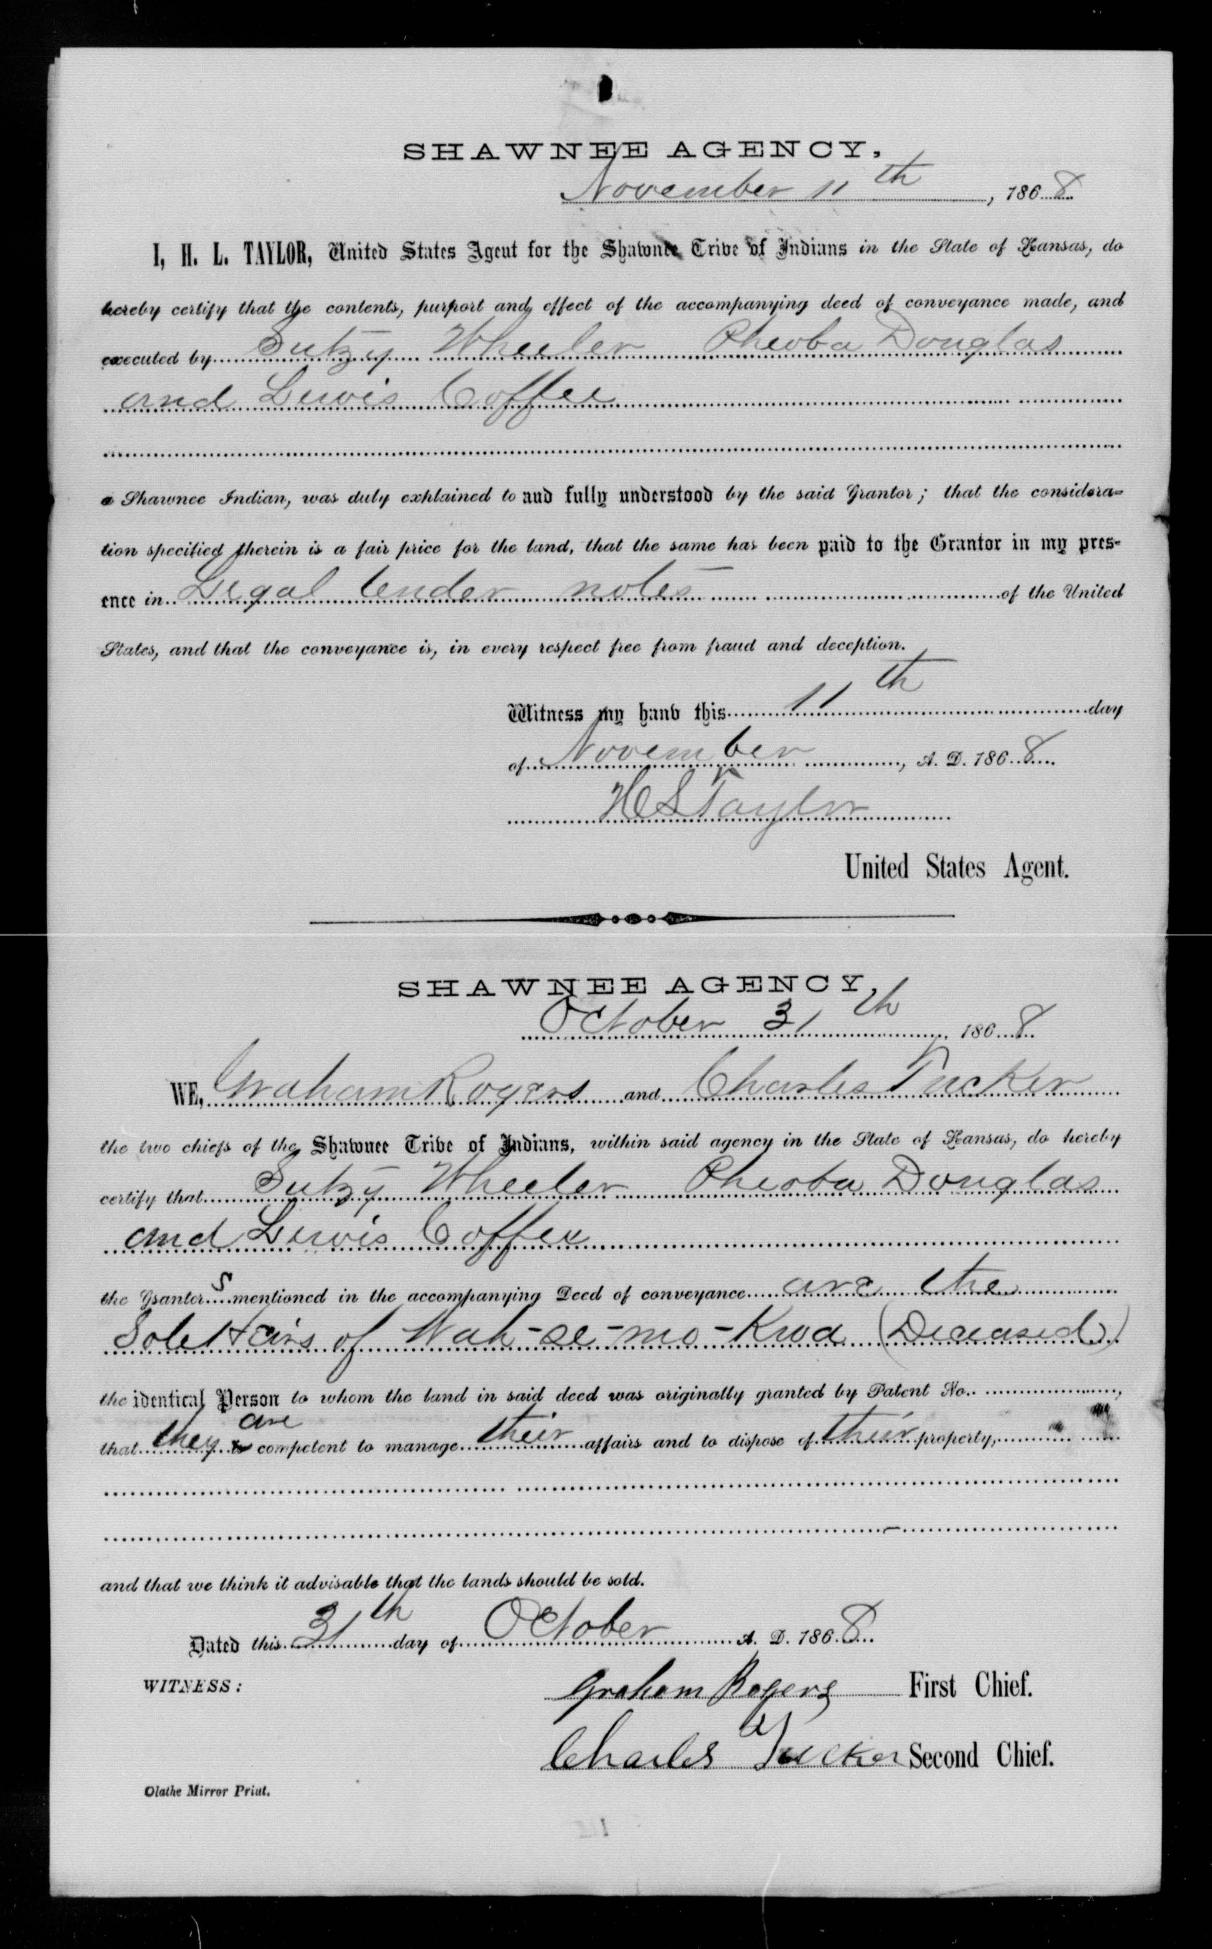 SHAWNEE AGENCY,
November 11th, 1868
I, H. L. TAYLOR, United States Agent for the Shawnee Tribe of Indians in the State of Kansas, do
hereby certify that the contents, purport and effect of the accompanying deed of conveyance made, and
executed by Sutzy Wheeler Pheoba Douglas
and Lewis Coffee
a Shawnee Indian, was duly explained to and fully understood by the said Grantor; that the considera-
tion specified therein is a fair price for the land, that the same has been paid to the Grantor in my pres-
ence in Legal tender notes of the United
States, and that the conveyance is, in every respect free from fraud and deception.
Witness my hand this 11th day
of November, A. D. 1868
H L Taylor
United States Agent.
SHAWNEE AGENCY,
October 31th 1868
WE, Graham Rogers and Charles Tucker
the two chiefs of the Shawnee Tribe of Indians, within said agency in the State of Kansas, do hereby
certify that Sutzy Wheeler Pheoba Douglas
and Lewis Coffee
the Grantors mentioned in the accompanying Deed of conveyance are the
Sole Heirs of Wah-se-mo-Kwa (Deceased)
the identical Person to whom the land in said deed was originally granted by Patent No.,
that they are competent to manage their affairs and to dispose of their property,
and that we think it advisable that the lands should be sold.
Dated this 31th day of October A. D. 1868
WITNESS:
Graham Rogers First Chief.
Charles Tucker Second Chief.
Olathe Mirror Print.